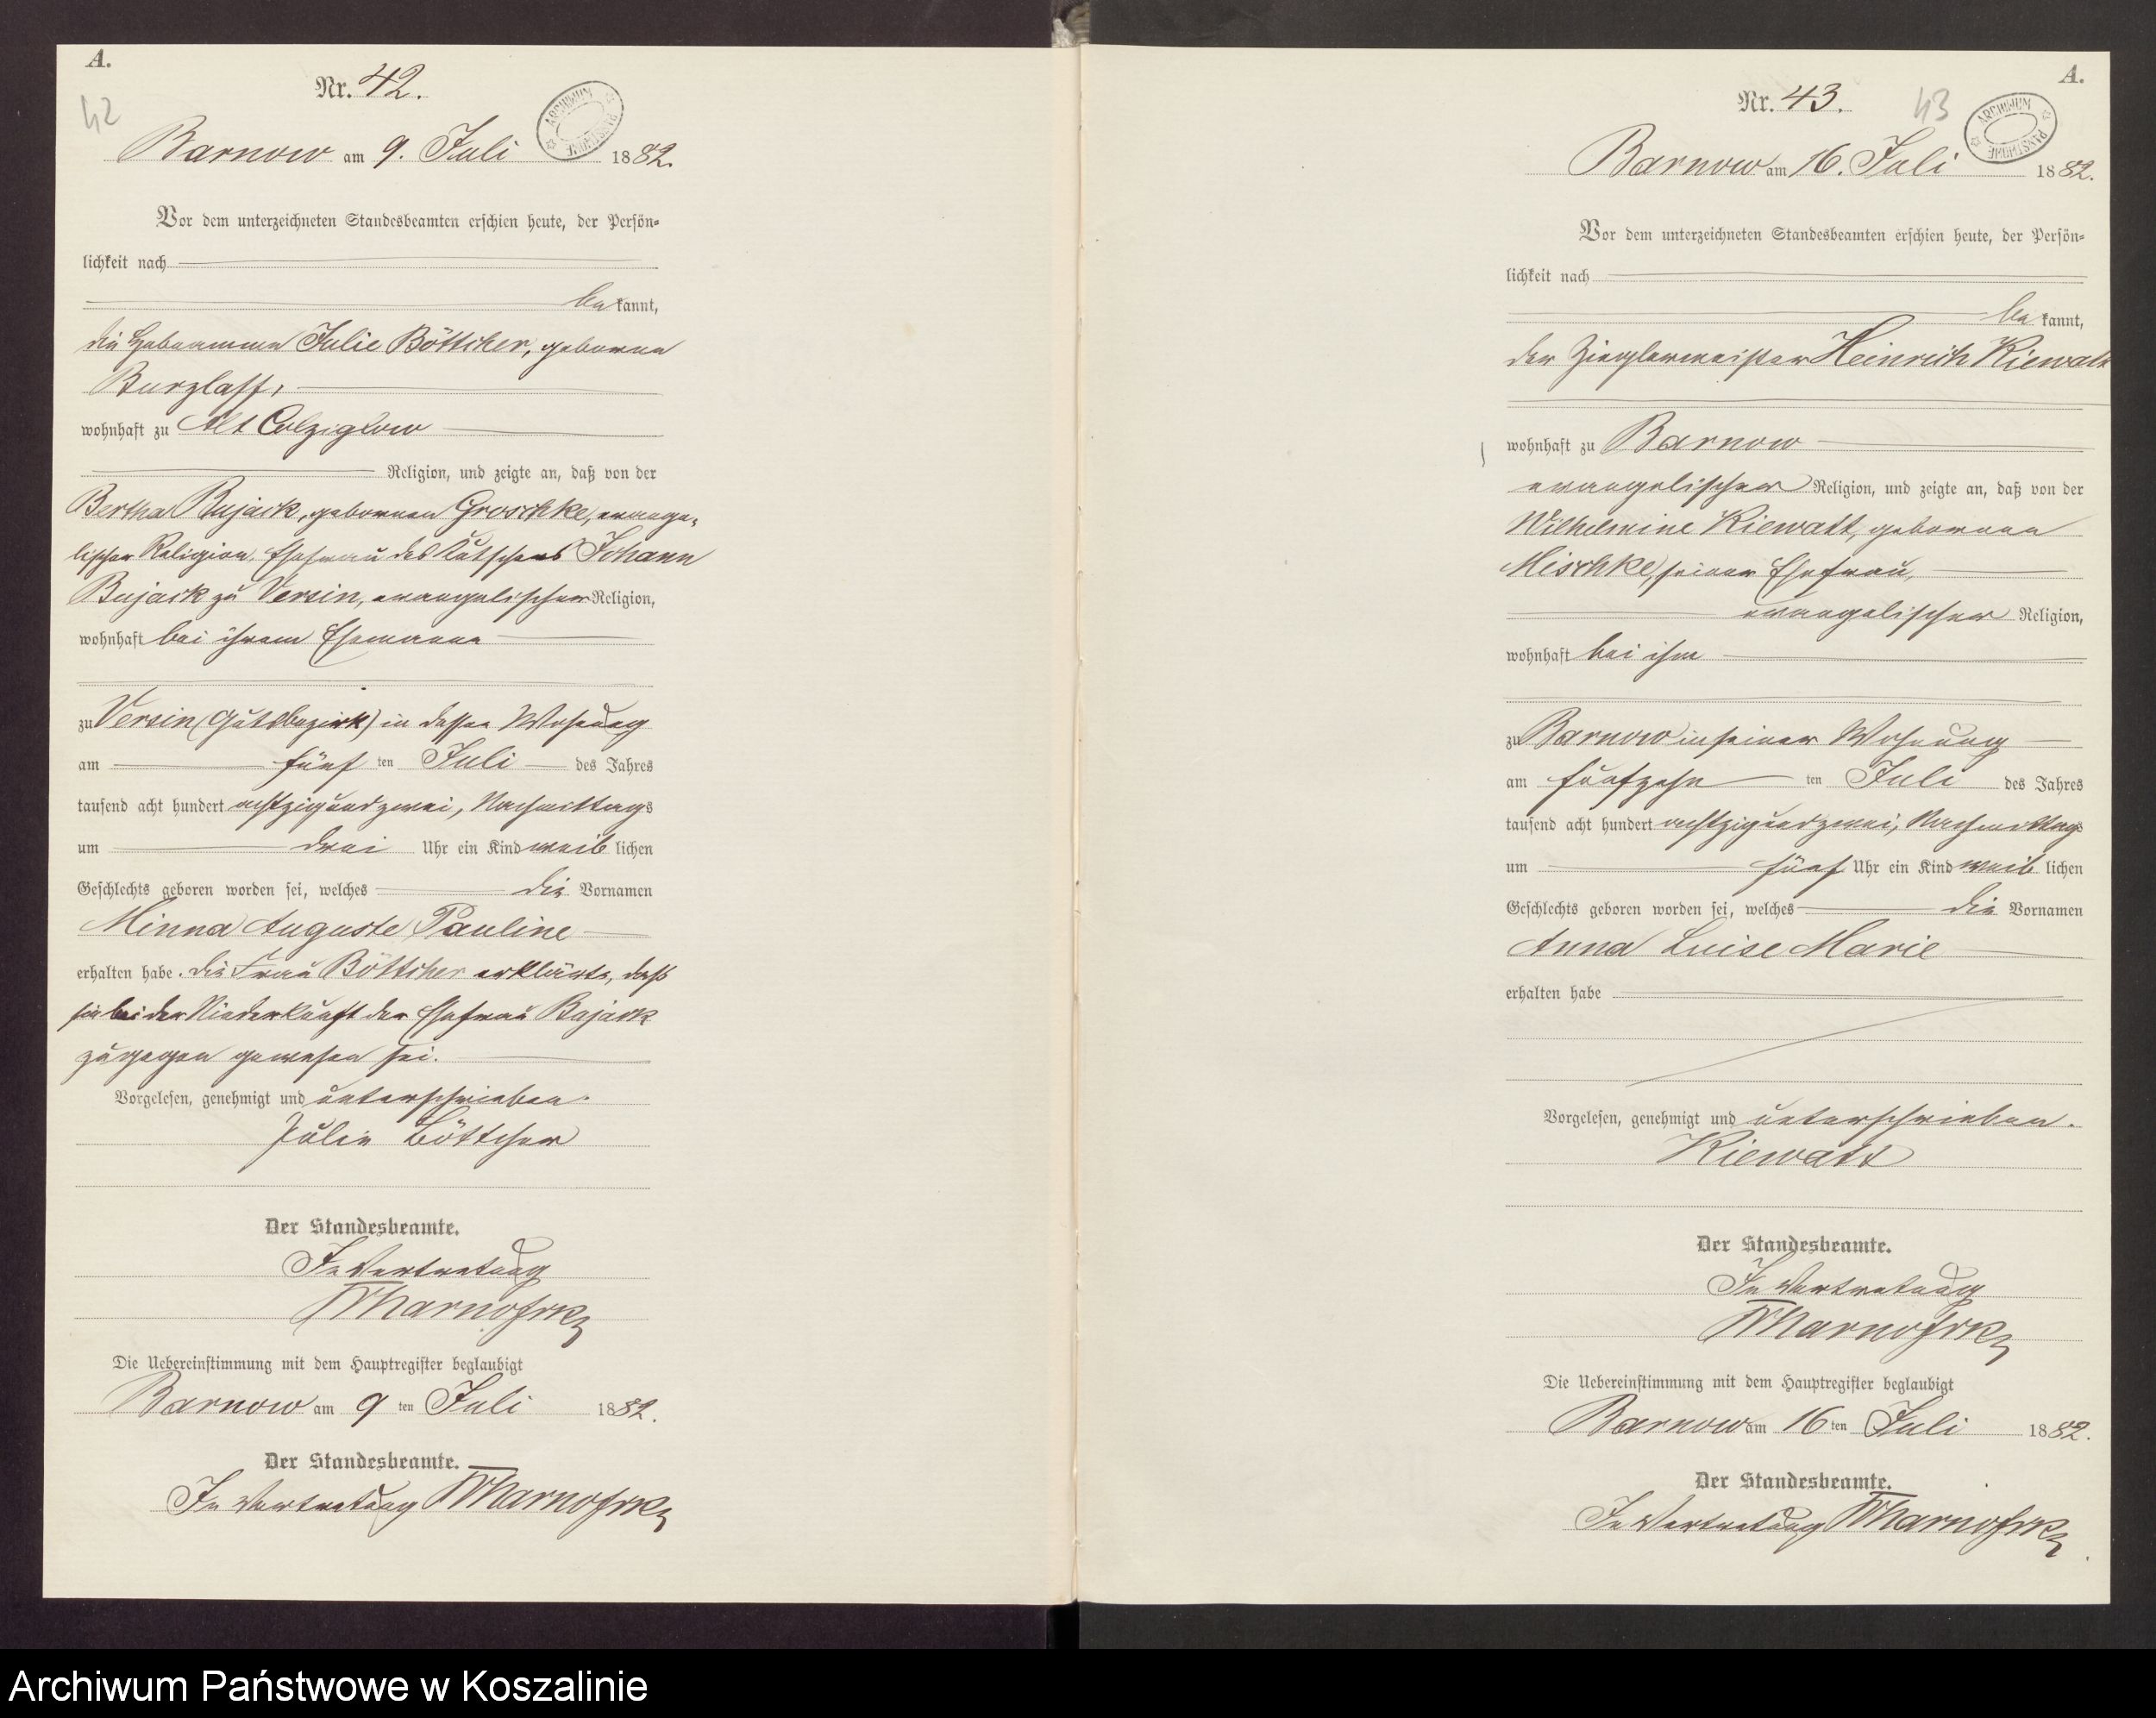 A.
Nr. 42.
42
ARCHIWUM PAŃSTWOWE
Barnow am 9. Juli 1882.
Vor dem unterzeichneten Standesbeamten erschien heute, der Persön-
lichkeit nach
be kannt,
die Hebeamme Julie Böttcher, geborene
Burzlaff,
wohnhaft zu Alt Colziglow
Religion, und zeigte an, daß von der
Bertha Bujack, geborenen Groschke, evange-
lischer Religion, Ehefrau des Kutschers Johann
Bujack zu Versin, evangelischer Religion,
wohnhaft bei ihrem Ehemanne
zu Versin (Gutsbezirk) in dessen Wohnung
am fünf ten Juli des Jahres
tausend acht hundert achtzig und zwei, Nachmittags
um drei Uhr ein Kind weib lichen
Geschlechts geboren worden sei, welches die Vornamen
Minna Auguste Pauline
erhalten habe. Die Frau Böttcher erklärte, daß
sie bei der Niederkunft der Ehefrau Bujack
zugegen gewesen sei.
Vorgelesen, genehmigt und unterschrieben.
Julie Böttcher
Der Standesbeamte.
In Vertretung
Die Uebereinstimmung mit dem Hauptregister beglaubigt
Barnow am 9 ten Juli 1882.
Der Standesbeamte.
In Vertretung
A.
Nr. 43.
43
ARCHIWUM PAŃSTWOWE
Barnow am 16. Juli 1882.
Vor dem unterzeichneten Standesbeamten erschien heute, der Persön-
lichkeit nach
be kannt,
der Zieglermeister Heinrich Kiewatt
wohnhaft zu Barnow
evangelischer Religion, und zeigte an, daß von der
Wilhelmine Kiewatt, geborenen
Mischke, seiner Ehefrau,
evangelischer Religion,
wohnhaft bei ihm
zu Barnow in seiner Wohnung
am fünfzehn ten Juli des Jahres
tausend acht hundert achtzig und zwei, Nachmittags
um fünf Uhr ein Kind weib lichen
Geschlechts geboren worden sei, welches die Vornamen
Anna Luise Marie
erhalten habe
Vorgelesen, genehmigt und unterschrieben.
Kiewatt
Der Standesbeamte.
In Vertretung
Die Uebereinstimmung mit dem Hauptregister beglaubigt
Barnow am 16 ten Juli 1882.
Der Standesbeamte.
In Vertretung
Archiwum Państwowe w Koszalinie